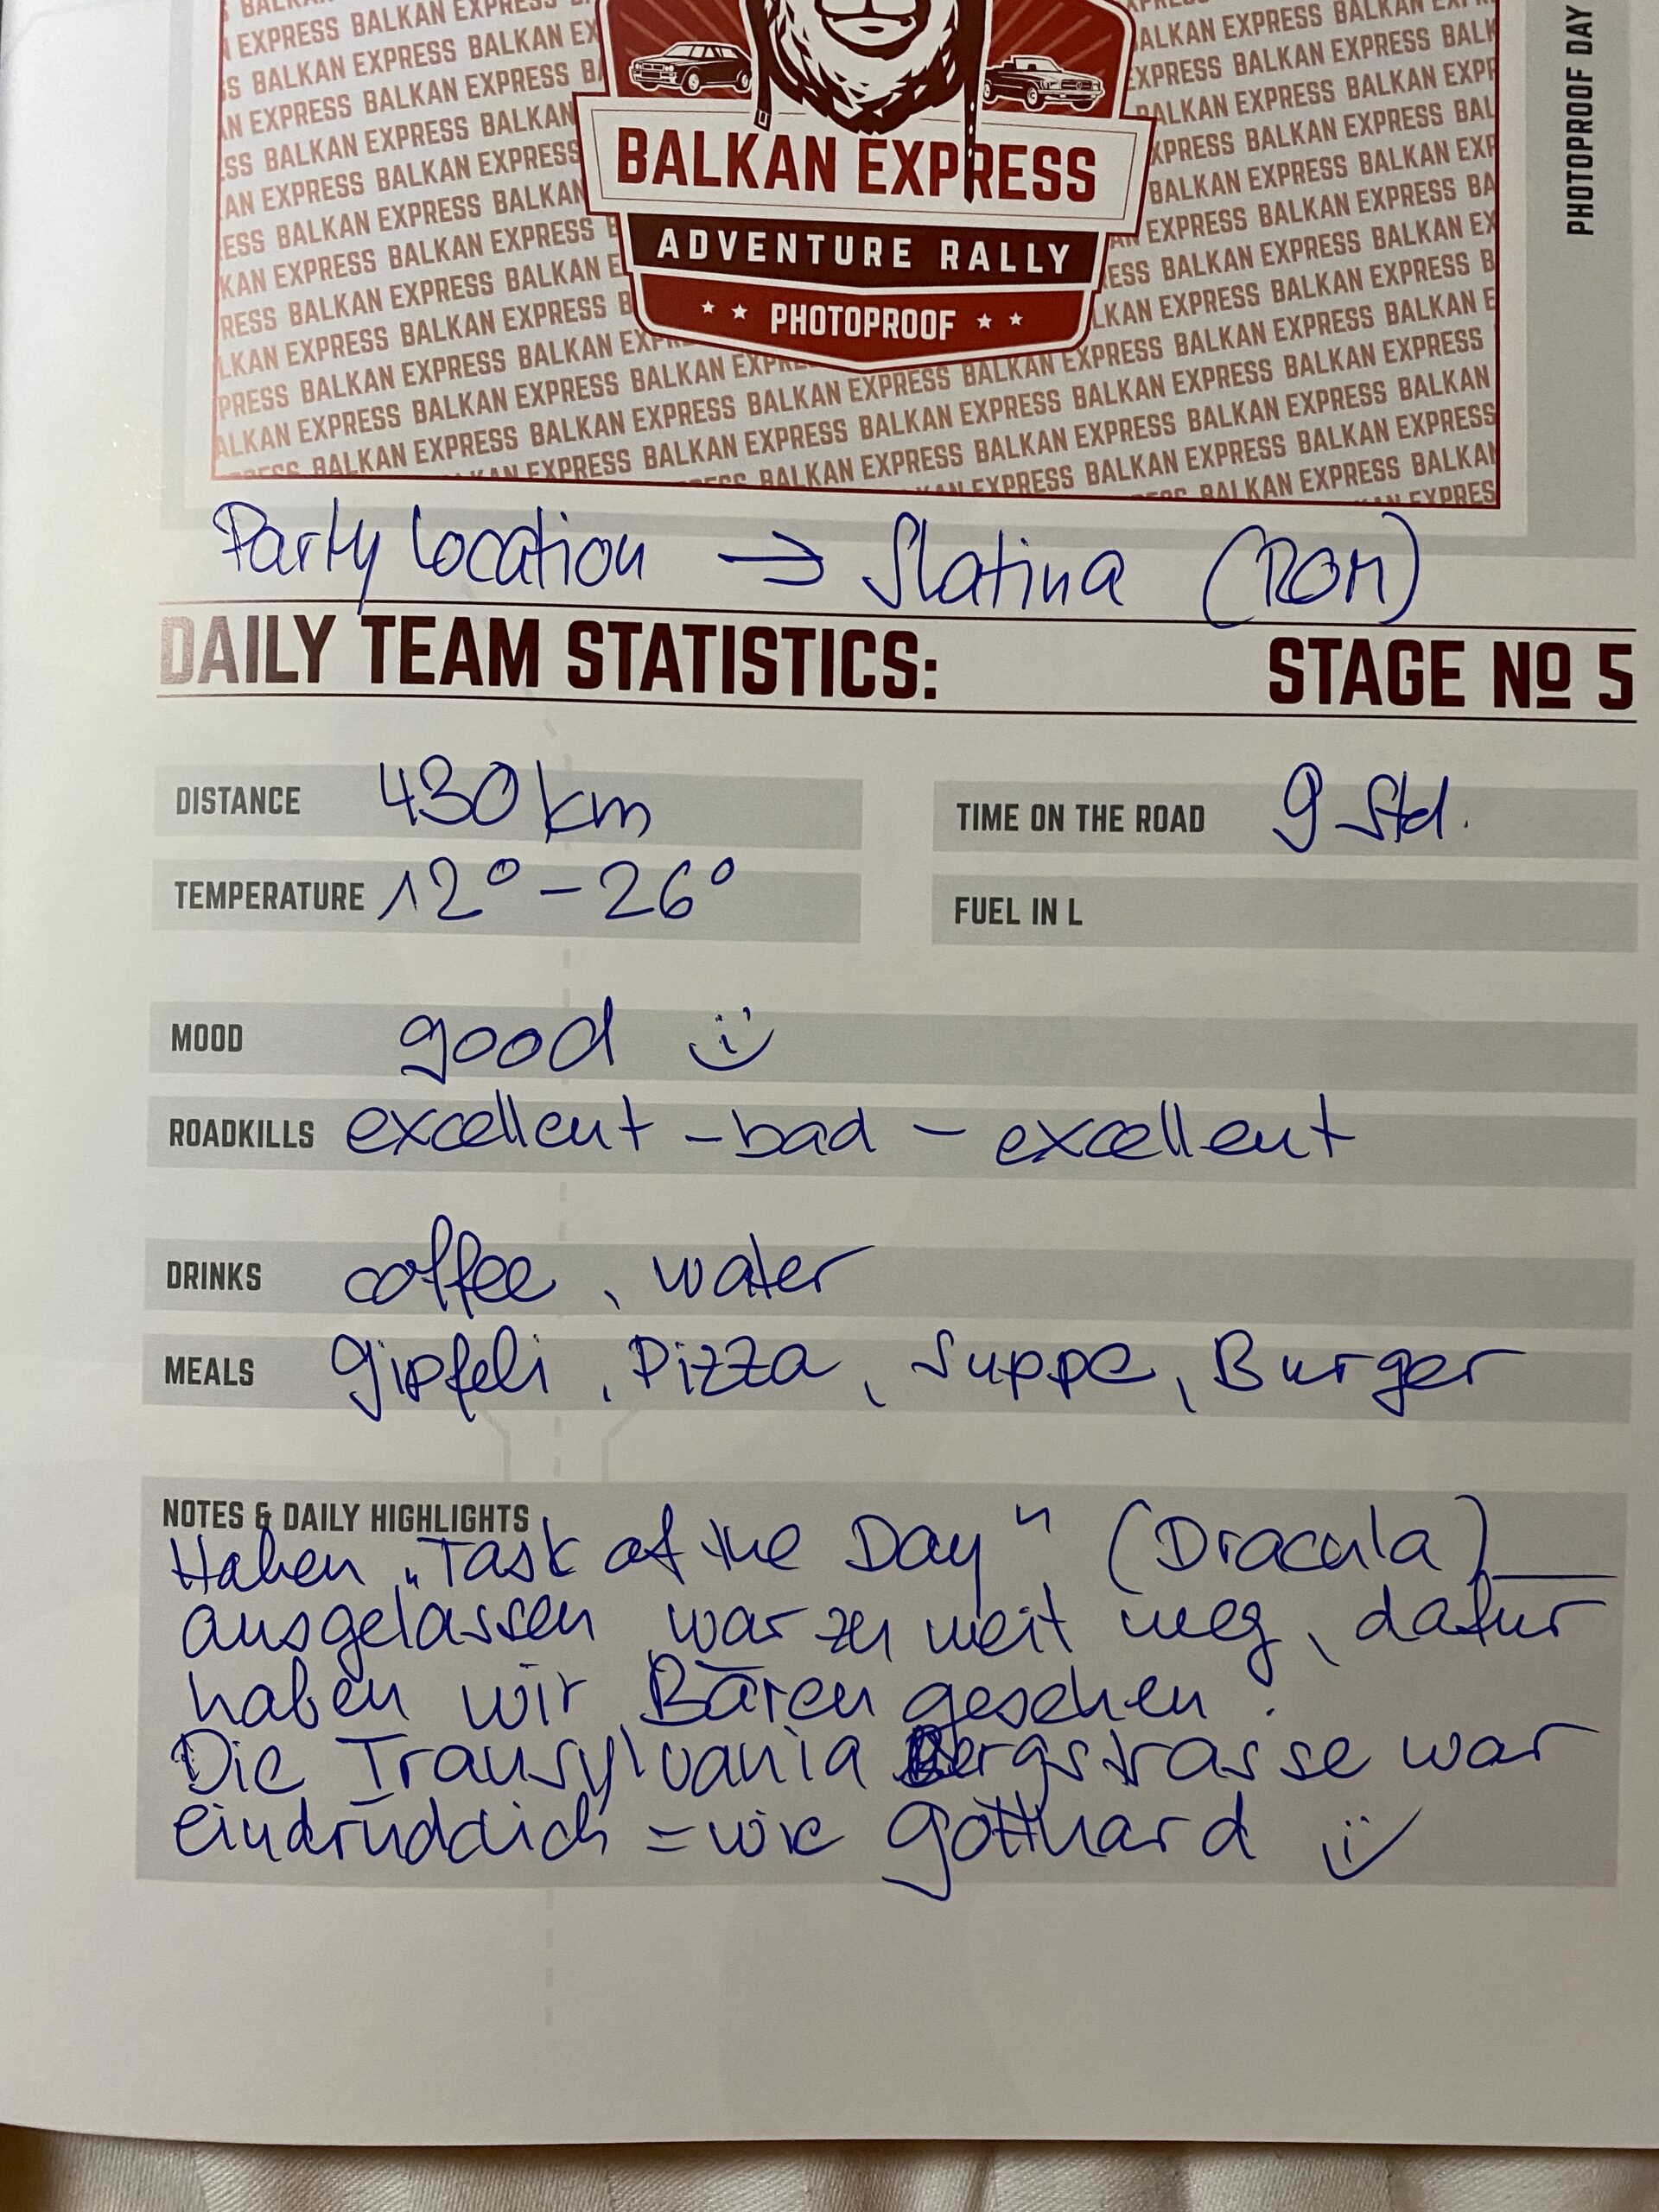 BALKAN EXPRESS
ADVENTURE RALLY
PHOTOPROOF
PHOTOPROOF DAY
Party Location → Slatina (ROM)
DAILY TEAM STATISTICS: STAGE NO 5
DISTANCE 430 km TIME ON THE ROAD 9 Std.
TEMPERATURE 12° – 26° FUEL IN L
MOOD good
ROADKILLS excellent – bad – excellent
DRINKS coffee, water
MEALS Gipfeli, Pizza, Suppe, Burger
NOTES & DAILY HIGHLIGHTS
Haben „Task of the Day" (Dracula)
ausgelassen, war zu weit weg, dafür
haben wir Bären gesehen.
Die Transylvania Bergstrasse war
eindrücklich = wie Gotthard